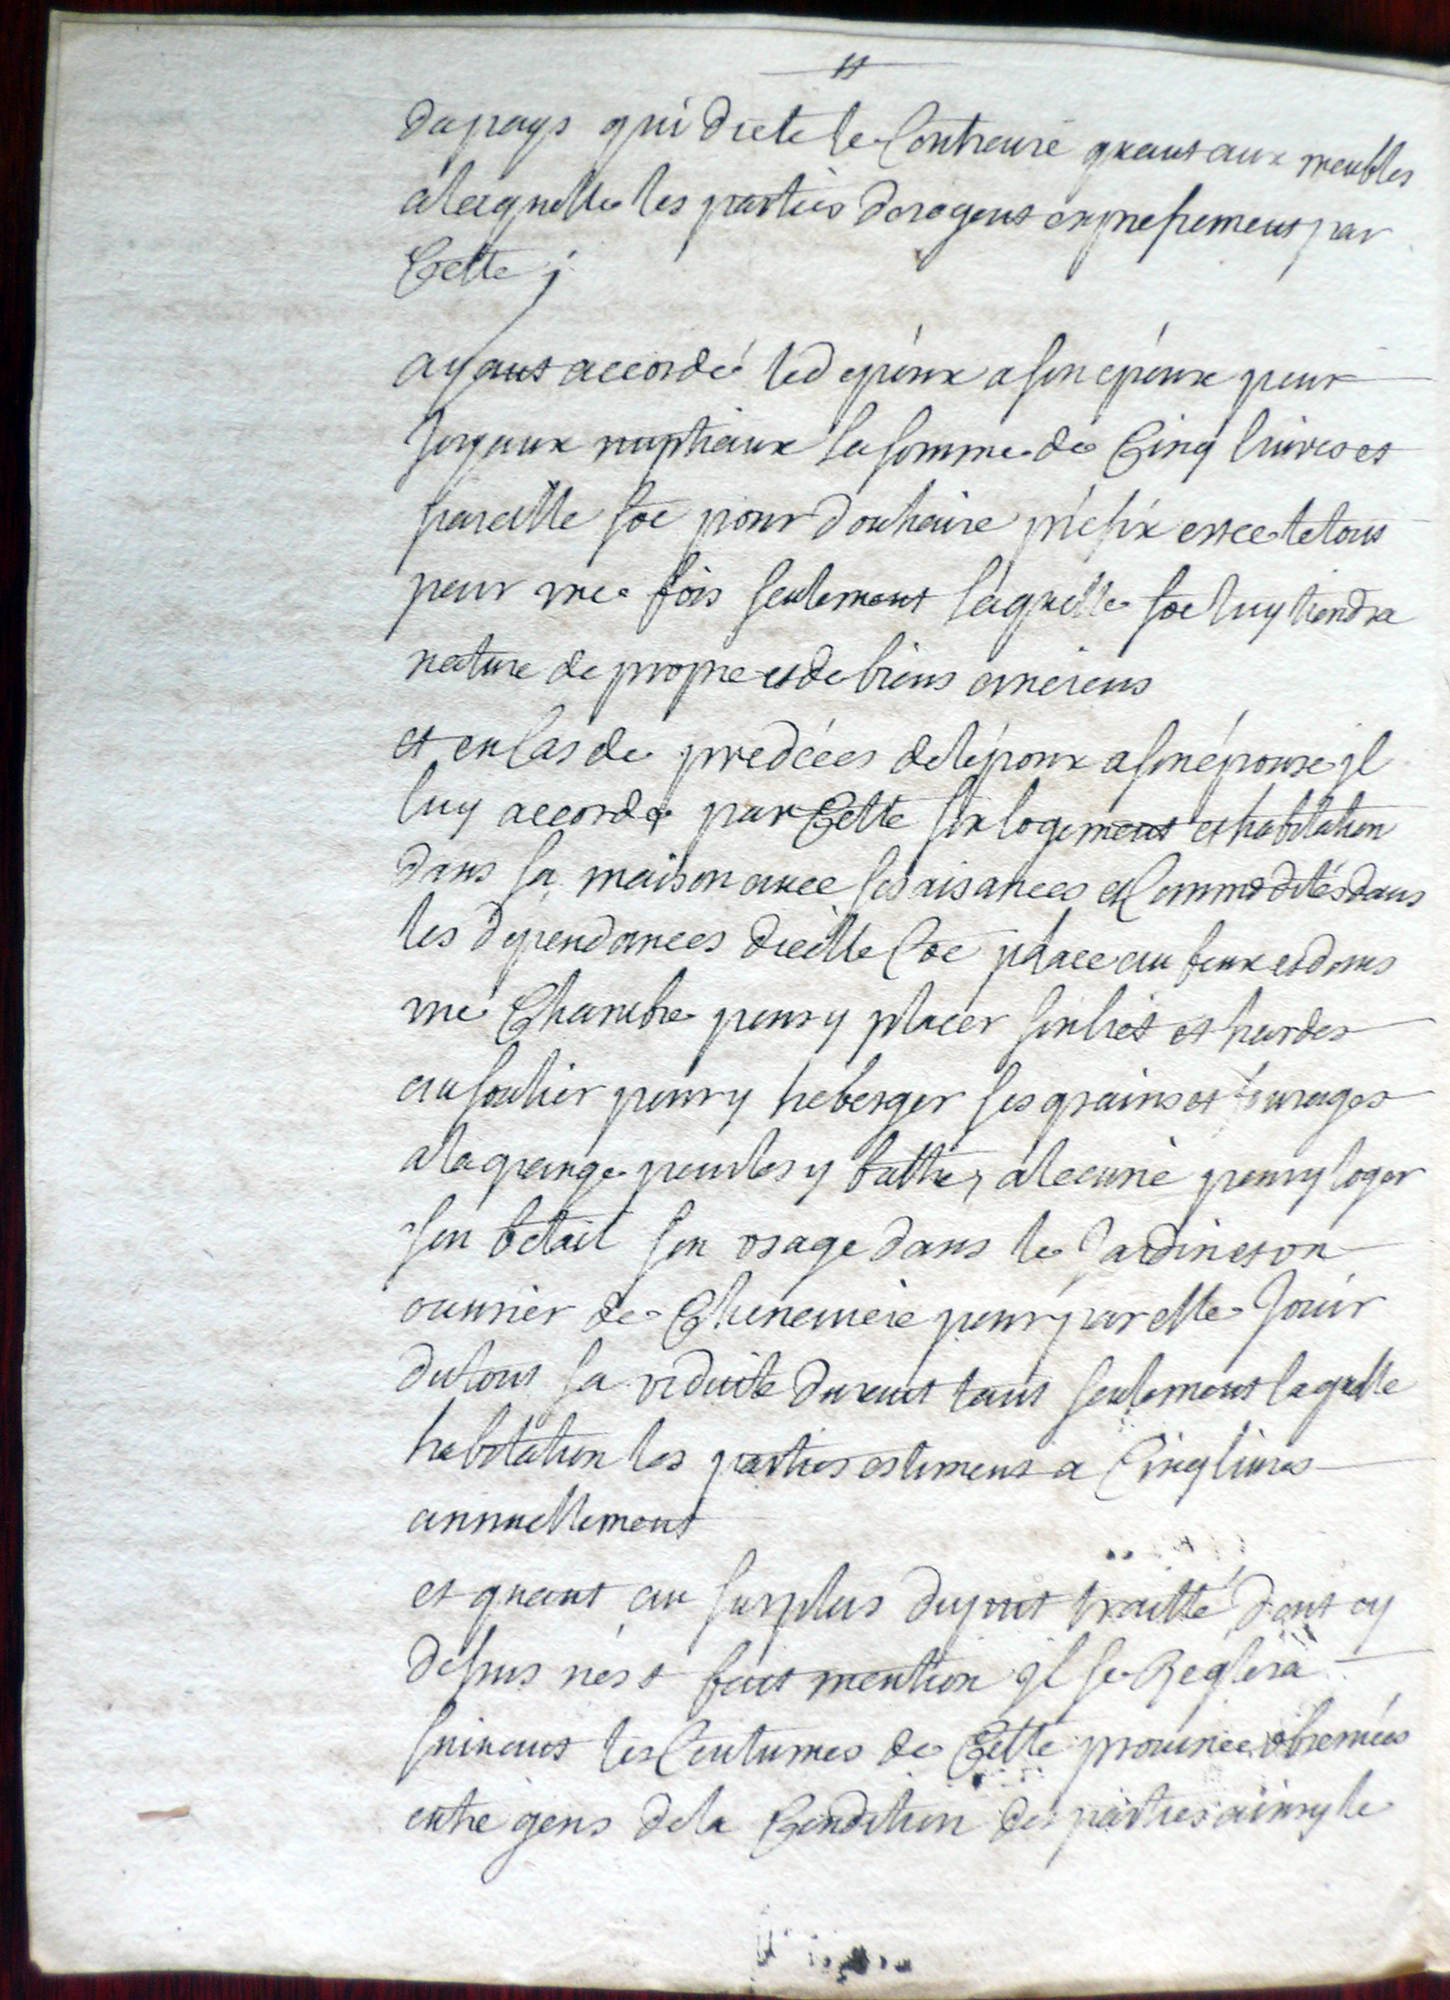 du pays qui dicte le Contraire quant aux meubles
a laquelle les parties derogent expressement par
Cette ;
ayant accordé led epoux a son epouse pour
Joyaux nuptiaux la somme de Cinq livres et
pareille soe pour douhaire préfix est ce le tout
pour une fois seulement laquelle soe luy tiendra
nature de propre et de biens anciens
et en Cas de predécés de lépoux a son épouse jl
luy accorde par Cette son logement et habitation
dans sa maison avec ses aisances et Commodités dans
les dependances dicelle Coe place au feux et dans
une Chambre pour y placer son liet et hardes
au soulier pour y heberger ses grains et fourages
a la grange pour les y battre, a lecurie pour y loger
son bétail son usage dans le Jardin et un
ouvrier de Cheneviere pour par elle Jouir
du tout sa viduité durant tant seulement laquelle
habitation les parties estiment a Cinq livres
annuellement
et quant au surplus du pnt traitté dont cy
dessus nést fait mention jl se Reglera
suivant les Coutumes de Cette province observées
entre gens de la Condition des parties ainsy le